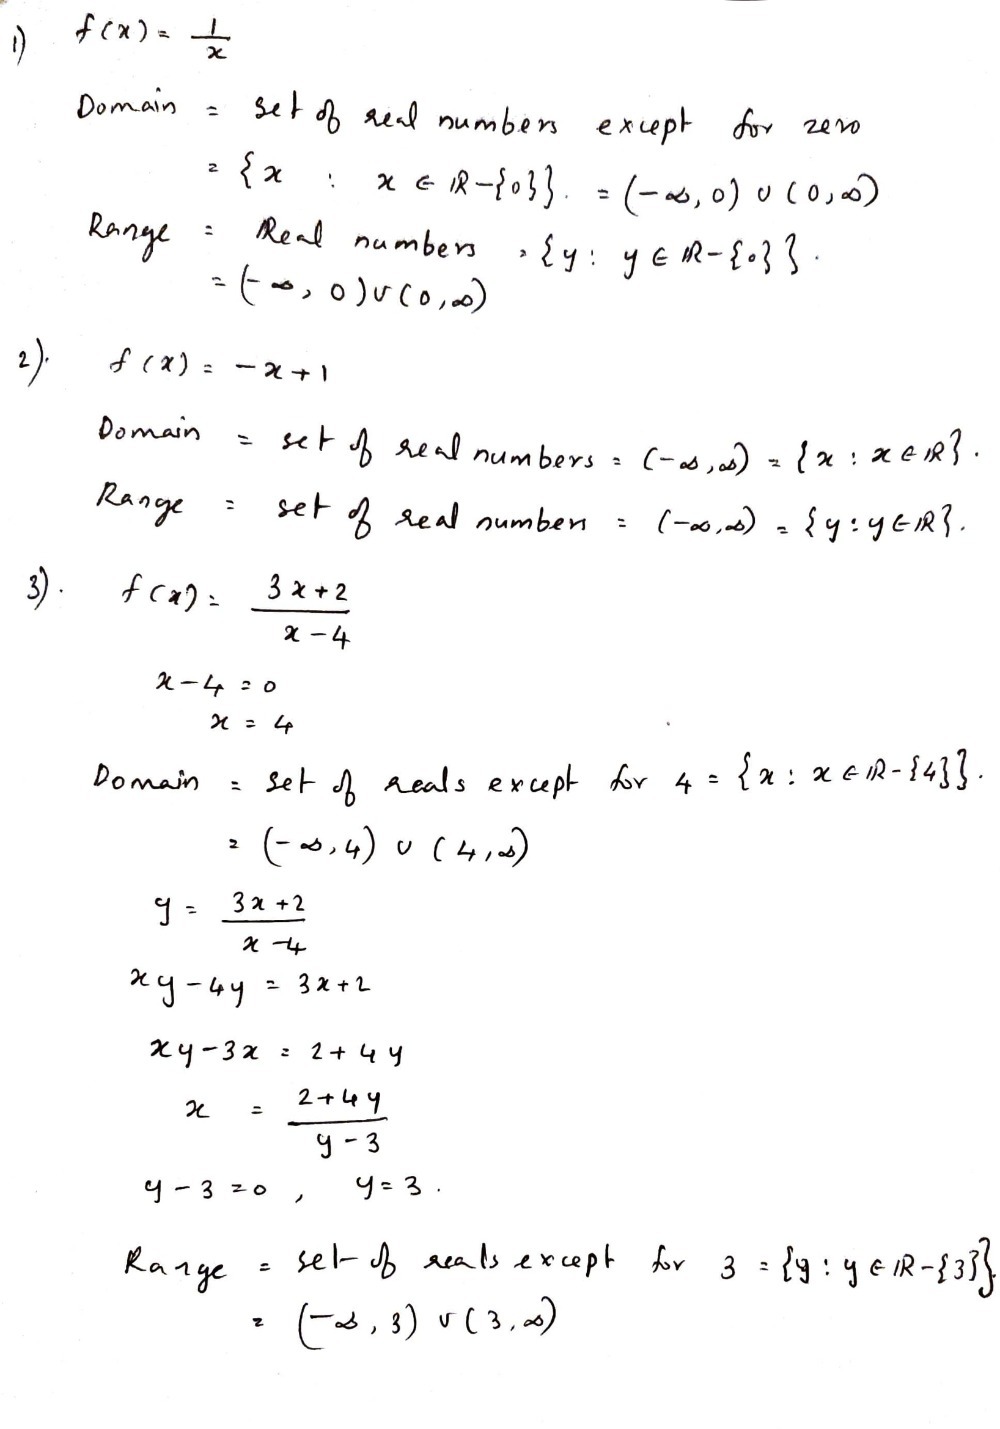 1) f(x) = 1/x
Domain = set of real numbers except for zero
= {x : x ∈ ℝ-{0}}. = (-∞, 0) ∪ (0, ∞)
Range = Real numbers , {y : y ∈ ℝ-{0}}.
= (-∞, 0) ∪ (0, ∞)
2). f(x) = -x+1
Domain = set of real numbers = (-∞, ∞) = {x : x ∈ ℝ}.
Range = set of real numbers = (-∞, ∞) = {y : y ∈ ℝ}.
3). f(x) = (3x+2)/(x-4)
x-4 = 0
x = 4
Domain = set of reals except for 4 = {x : x ∈ ℝ-{4}}.
= (-∞, 4) ∪ (4, ∞)
y = (3x+2)/(x-4)
xy-4y = 3x+2
xy-3x = 2+4y
x = (2+4y)/(y-3)
y-3 = 0 , y = 3.
Range = set of reals except for 3 = {y : y ∈ ℝ-{3}}.
= (-∞, 3) ∪ (3, ∞)